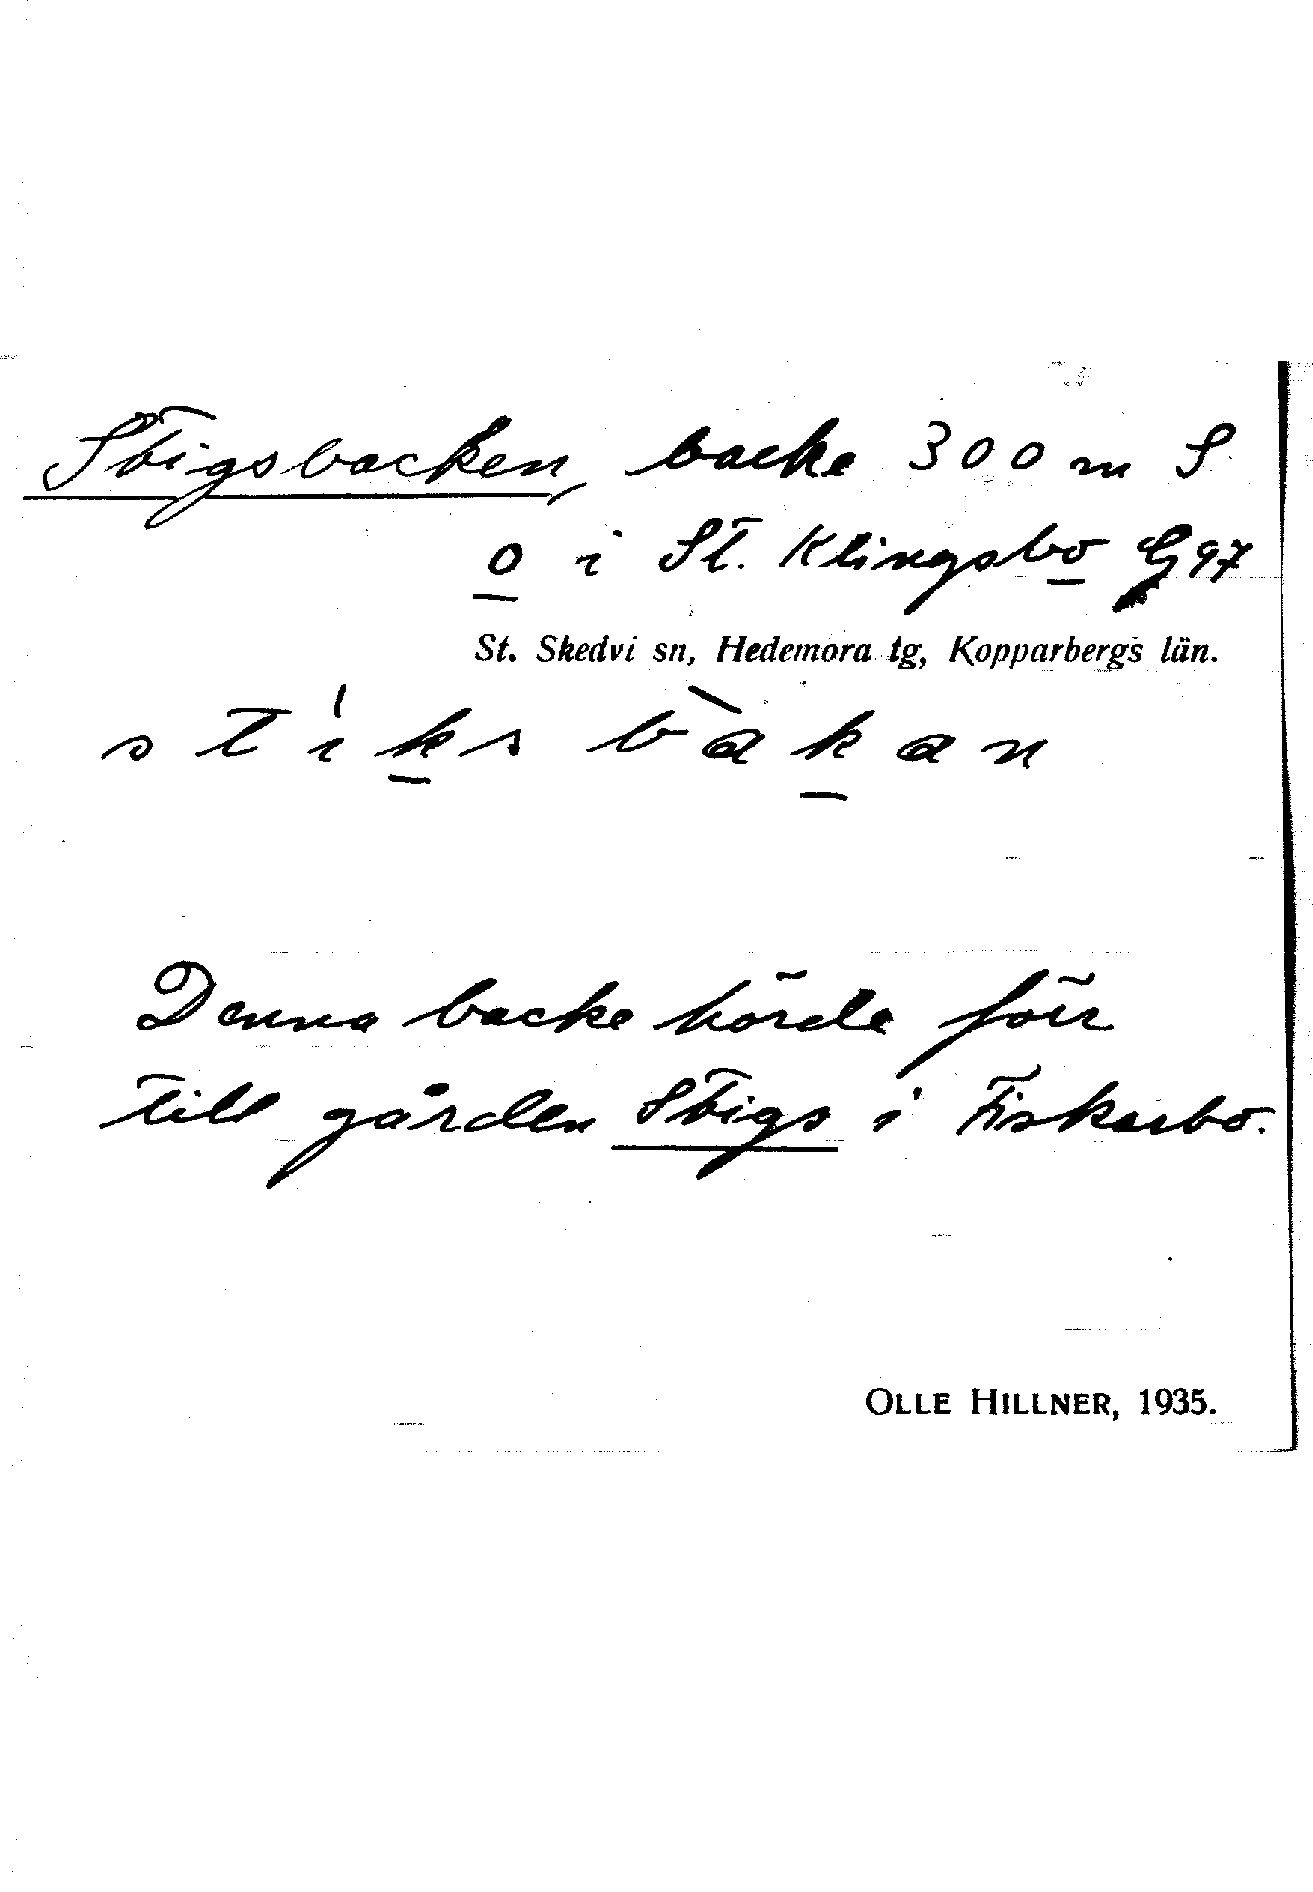 Stigsbacken, backe 300 m S
o i St. Klingsbo G 97
St. Skedvi sn, Hedemora tg, Kopparbergs län.
stíksbàkan
Denna backe hörde förr
till gården Stigs i Fiskarbo.
OLLE HILLNER, 1935.